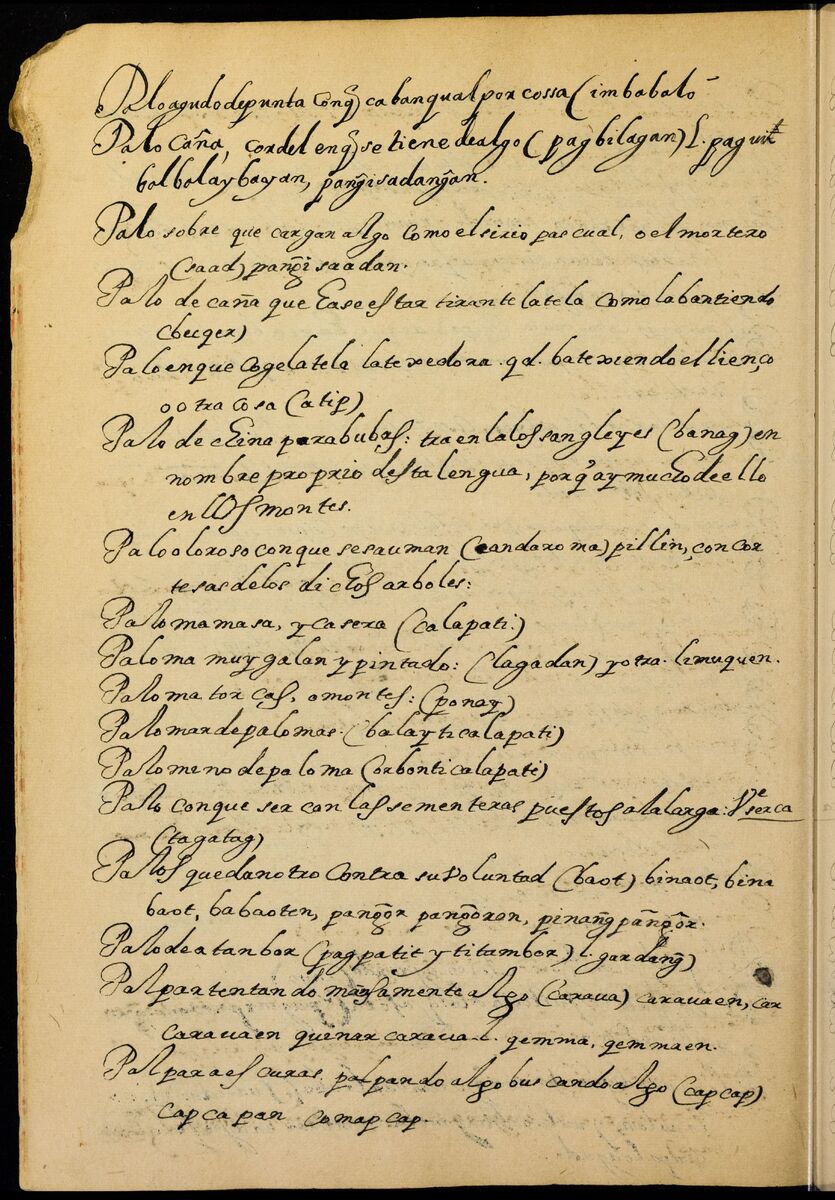 Palo agudo de punta conq̃ caban qualpor cossa (imbabalo
Palo caña, cordel enq̃ se tiene de algo (pagbilagan) l. pag
balbalaybayan, pang̃isadang̃an.
Palo sobre que cargan algo como el sirio pascual, o el mortero
(saad) pang̃isaadan.
Palo de caña que hase estar tirante la tela como la ban tiendo
Palo enque coge la tela la texedora. qd. ba texiendo el lienço
o otra cosa (atip)
Palo de china para bubas: traenla los sangleyes (banag) en
nombre proprio desta lengua, porq̃ ay mucho de ello
en llos montes.
Palo oloroso con que se sauman (candaroma) pillin, con cor
tesas de los dichos arboles:
Paloma mansa, y casera (calapati:)
Paloma muy galan y pintado: (lagadan) y otra. limuquen.
Paloma torcas, o montes: (ponay)
Palomar de palomas. (balay ti calapati)
Palomino de paloma (orbon ti calapati)
Palo con que sercan las sementeras puestos a la larga: Vᵉ serca
(tagatag)
Palos que dan otro contra su voluntad (baot) binaot, bina
baot, babaoten, pang̃or pang̃oren, pinang̃pang̃or.
Palo de atanbor (pagpatit y ti tambor) l. gardang̃)
Palpar tentando mansamente algo (caraua) carauaen, car
carauaen quinarcaraua. l. gemma, gemmaen.
Palpar a escuras palpando algo buscando algo (capcap)
capcapan comapcap.